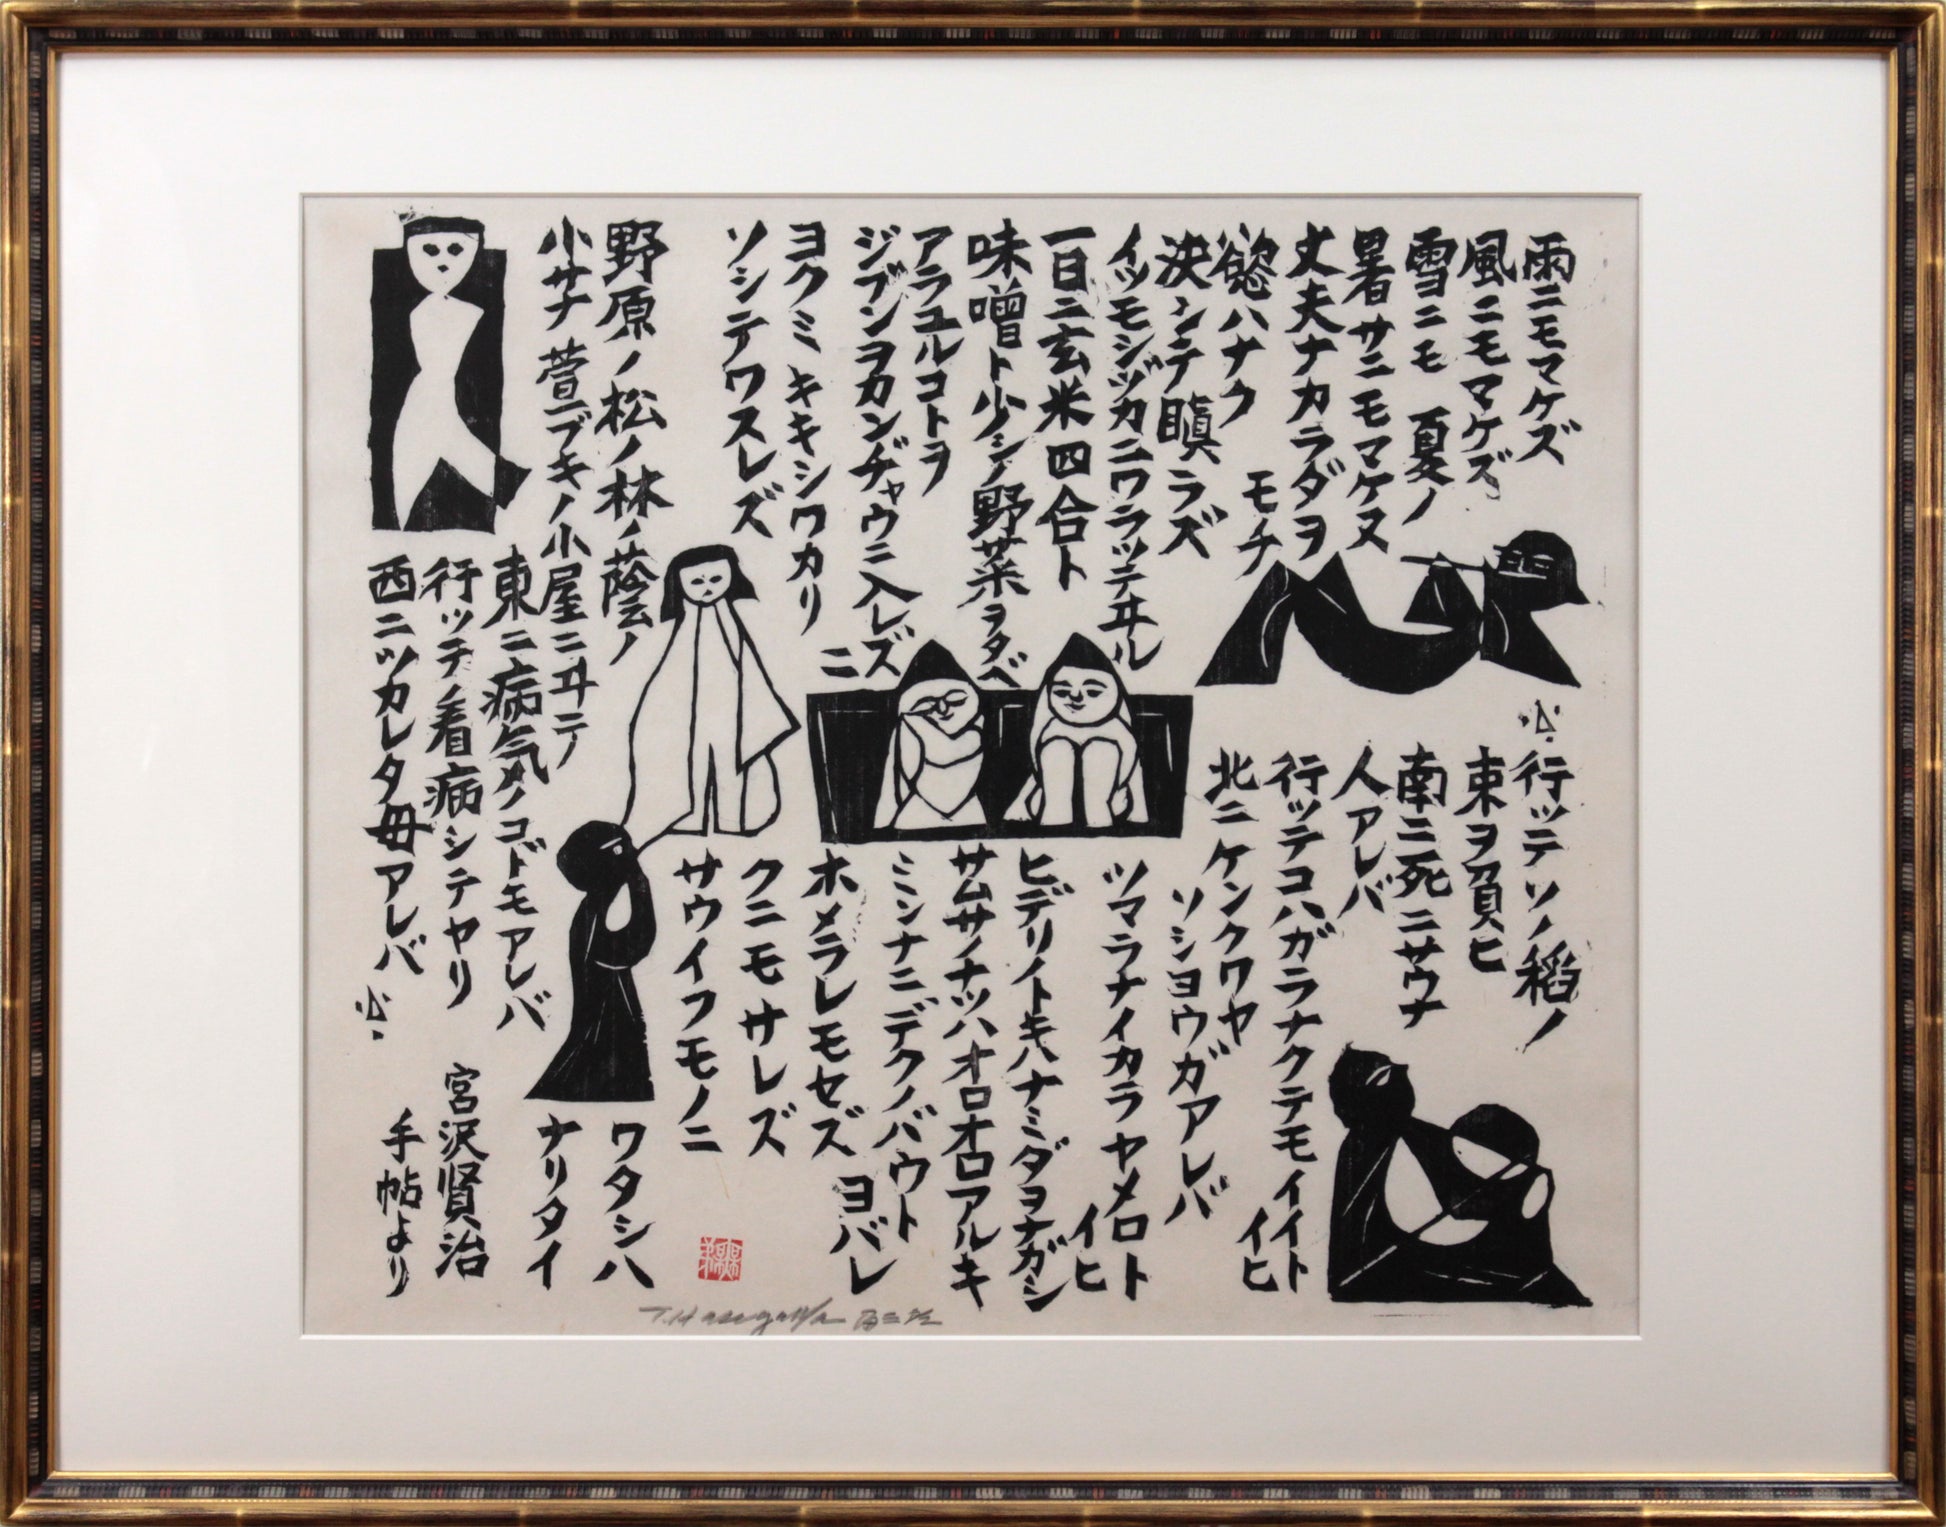 雨ニモマケズ
風ニモマケズ
雪ニモ 夏ノ
暑サニモマケヌ
丈夫ナカラダヲ
モチ
慾ハナク
決シテ瞋ラズ
イツモシヅカニワラッテヰル
一日ニ玄米四合ト
味噌ト少シノ野菜ヲタベ
アラユルコトヲ
ジブンヲカンヂャウニ入レズ
ニ
ヨクミキキシワカリ
ソシテワスレズ
野原ノ松ノ林ノ蔭ノ
小サナ萱ブキノ小屋ニヰテ
東ニ病気ノコドモアレバ
行ッテ看病シテヤリ
西ニツカレタ母アレバ
行ッテソノ稲ノ
束ヲ負ヒ
南ニ死ニサウナ
人アレバ
行ッテコハガラナクテモイイト
イヒ
北ニケンクワヤ
ソショウガアレバ
ツマラナイカラヤメロト
イヒ
ヒデリノトキハナミダヲナガシ
サムサノナツハオロオロアルキ
ミンナニデクノバウト
ヨバレ
ホメラレモセズ
クニモサレズ
サウイフモノニ
ワタシハ
ナリタイ
宮沢賢治
手帖より
T.Hasegawa